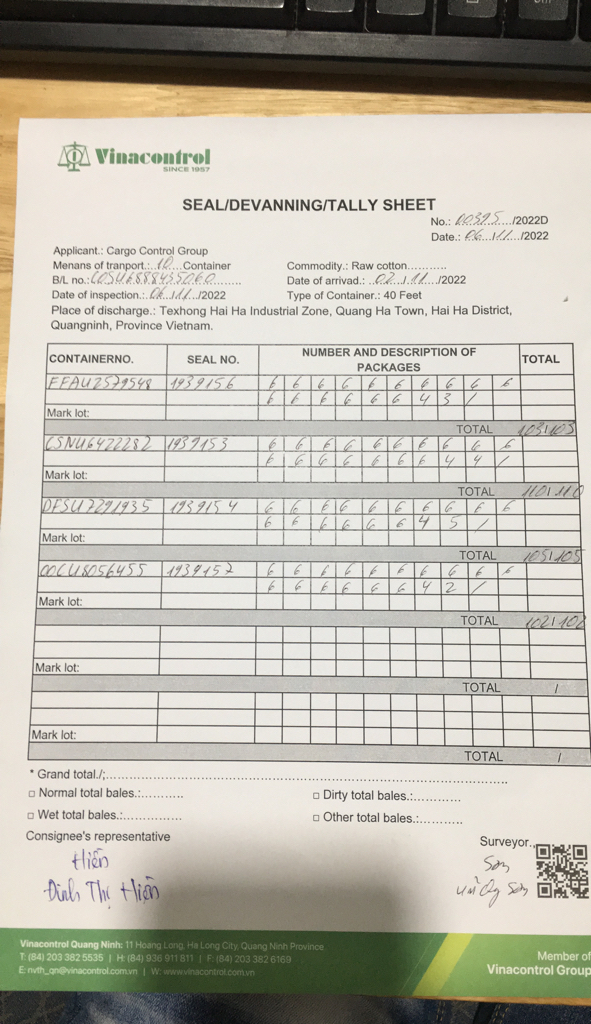 Vinacontrol
SINCE 1957
SEAL/DEVANNING/TALLY SHEET
No.: 00395 /2022D
Date.: 06 /11 /2022
Applicant.: Cargo Control Group
Menans of tranport.: 10 Container
Commodity.: Raw cotton
B/L no.: COSU6888435060
Date of arrivad.: 02 /11 /2022
Date of inspection.: 06 /11 /2022
Type of Container.: 40 Feet
Place of discharge.: Texhong Hai Ha Industrial Zone, Quang Ha Town, Hai Ha District,
Quangninh, Province Vietnam.
CONTAINERNO. SEAL NO. NUMBER AND DESCRIPTION OF PACKAGES TOTAL
FFAU2579548 1939156 6 6 6 6 6 6 6 6 6 6
6 6 6 6 6 6 4 3 /
Mark lot:
TOTAL 103/103
CSNU6422282 1939153 6 6 6 6 6 6 6 6 6 6
6 6 6 6 6 6 6 4 4 /
Mark lot:
TOTAL 110/110
DFSU7291935 1939154 6 6 6 6 6 6 6 6 6 6
6 6 6 6 6 6 4 5 /
Mark lot:
TOTAL 105/105
OOCU8056455 1939157 6 6 6 6 6 6 6 6 6 6
6 6 6 6 6 6 4 2 /
Mark lot:
TOTAL 102/102
Mark lot:
TOTAL /
Mark lot:
TOTAL /
* Grand total./;
□ Normal total bales.:
□ Dirty total bales.:
□ Wet total bales.:
□ Other total bales.:
Consignee's representative
Surveyor.
Hiền
Đinh Thị Hiền
Sơn
Vinacontrol Quang Ninh: 11 Hoang Long, Ha Long City, Quang Ninh Province
T: (84) 203 382 5535 | H: (84) 936 911 811 | F: (84) 203 382 6169
E: nvth_qn@vinacontrol.com.vn | W: www.vinacontrol.com.vn
Member of
Vinacontrol Group